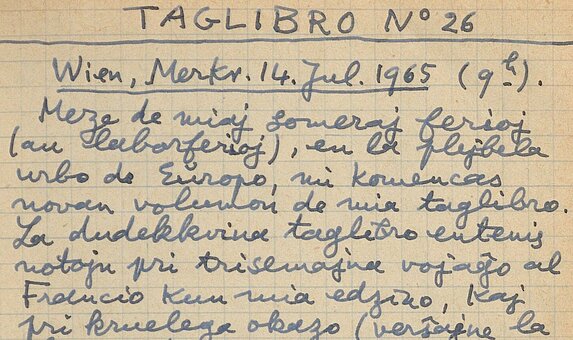 TAGLIBRO Nº 26
Wien, Merkr. 14. Jul. 1965 (9ʰ).
Meze de miaj someraj ferioj
(au laborferioj), en la plejbela
urbo de Eŭropo, mi komencas
novan volumon de mia taglibro.
La dudekkvina taglibro entenis
notojn pri trisemajna vojaĝo al
Francio kun mia edzino, kaj
pri kruelega okazo (verŝajne la